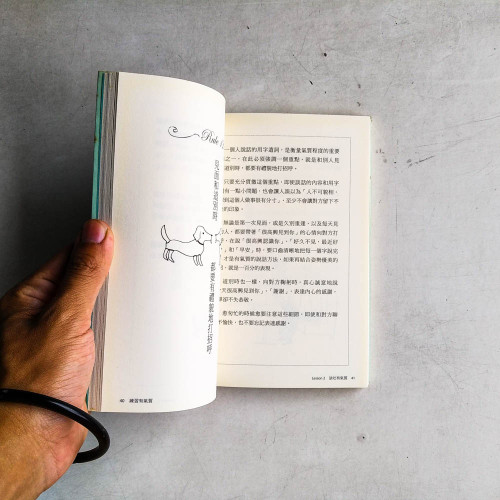 Rule
見面和道別時,
都要有禮貌地打招呼
40 練習有氣質
一個人說話的用字遣詞,是衡量氣質程度的重要
之一。在此必須強調一個重點,就是和別人見
道別時,都要有禮貌地打招呼。
只要充分貫徹這個重點,即使說話的內容和用字
有一點小問題,也會讓人認為「人不可貌相,
到這個人做事很有分寸」,至少不會讓對方留下不
的印象。
無論是第一次見面,或是久別重逢,以及每天見
人,都要帶著「很高興見到你」的心情向對方打
。在說「很高興認識你」、「好久不見,最近好
」和「早安」時,要口齒清晰地把每一個字說完
才是有氣質的說話方法。如果再結合姿勢優美的
,就是一百分的表現。
道別時也一樣,向對方鞠躬時,真心誠意地說
天很高興見到你」、「謝謝」,表達內心的感謝,
卻不失恭敬。
愈匆忙的時候愈要注意這些細節,即使和對方
不愉快,也不要忘記表達感謝。
lesson 2 談吐有氣質 41